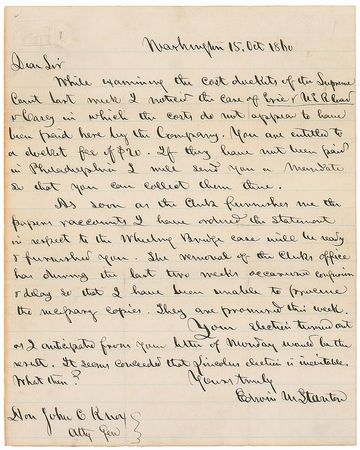 Washington 15. Oct 1860
Dear Sir
While examining the cost dockets of the Supreme
Court last week I noticed the case of Erie & N.E. Road
v Casey in which the costs do not appear to have
been paid here by the Company. You are entitled to
a docket fee of $20. If they have not been paid
in Philadelphia I will send you a Mandate
so that you can collect them there.
As soon as the Clerk furnishes me the
papers & accounts I have ordered the Statement
in respect to the Wheeling Bridge case will be ready
& furnished you. The removal of the Clerks office
has during the last two weeks occasioned confusion
& delay so that I have been unable to procure
the necessary copies. They are promised this week.
Your election turned out
as I anticipated from your letter of Monday would be the
result. It seems conceded that Lincolns election is inevitable.
What then?
Yours truly
Edwin M Stanton
Hon John C Knox
Atty Gen